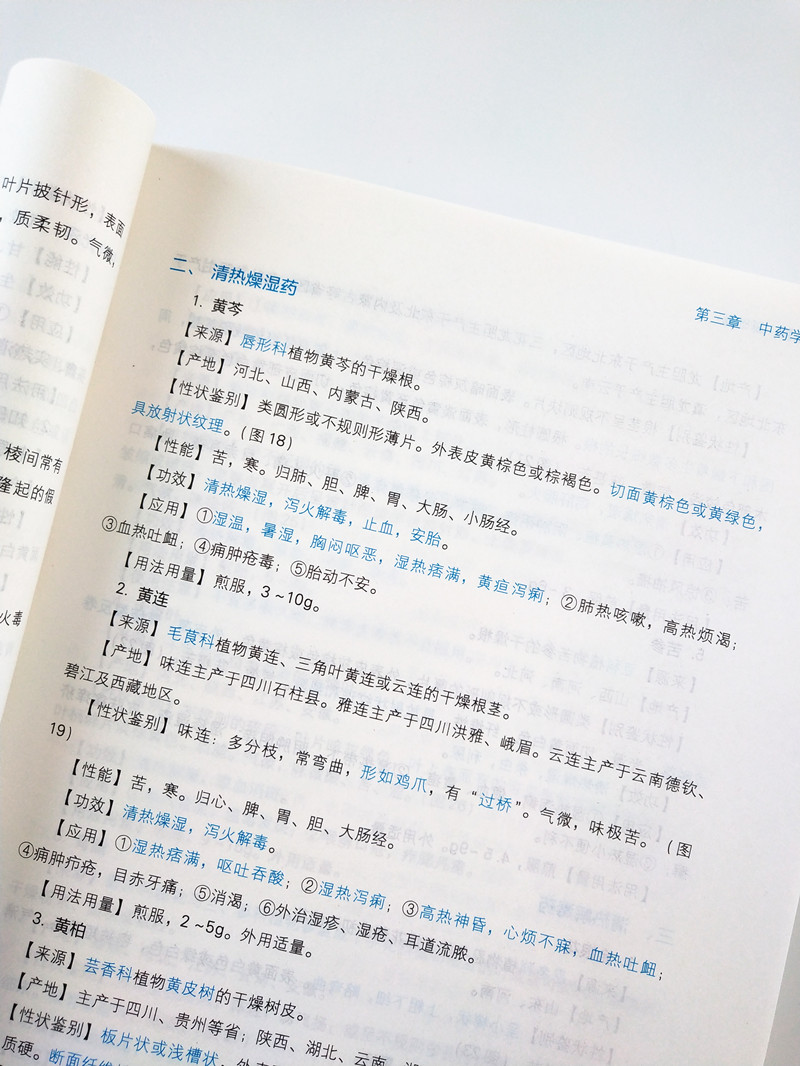 叶片披针形，表面
，质柔韧。气微，
棱间常有
隆起的假
火毒
第三章 中药学
二、清热燥湿药
1. 黄芩
【来源】唇形科植物黄芩的干燥根。
【产地】河北、山西、内蒙古、陕西。
【性状鉴别】类圆形或不规则形薄片。外表皮黄棕色或棕褐色。切面黄棕色或黄绿色，
具放射状纹理。（图18）
【性能】苦，寒。归肺、胆、脾、胃、大肠、小肠经。
【功效】清热燥湿，泻火解毒，止血，安胎。
【应用】①湿温，暑湿，胸闷呕恶，湿热痞满，黄疸泻痢；②肺热咳嗽，高热烦渴；
③血热吐衄；④痈肿疮毒；⑤胎动不安。
【用法用量】煎服，3~10g。
2. 黄连
【来源】毛茛科植物黄连、三角叶黄连或云连的干燥根茎。
【产地】味连主产于四川石柱县。雅连主产于四川洪雅、峨眉。云连主产于云南德钦、
碧江及西藏地区。
【性状鉴别】味连：多分枝，常弯曲，形如鸡爪，有“过桥”。气微，味极苦。（图
19）
【性能】苦，寒。归心、脾、胃、胆、大肠经。
【功效】清热燥湿，泻火解毒。
【应用】①湿热痞满，呕吐吞酸；②湿热泻痢；③高热神昏，心烦不寐，血热吐衄；
④痈肿疖疮，目赤牙痛；⑤消渴；⑥外治湿疹、湿疮、耳道流脓。
【用法用量】煎服，2~5g。外用适量。
3. 黄柏
【来源】芸香科植物黄皮树的干燥树皮。
【产地】主产于四川、贵州等省；陕西、湖北、云南、
【性状鉴别】板片状或浅槽状，外表
质硬。断面纤维